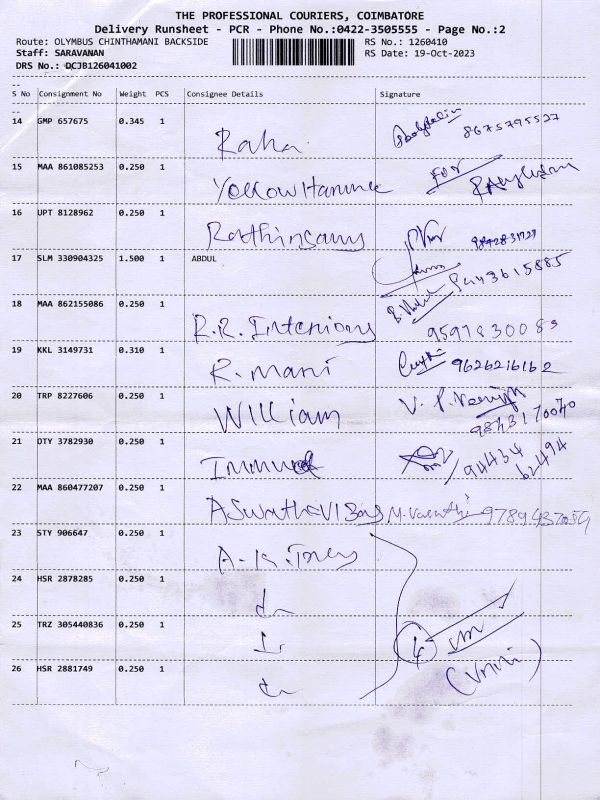 THE PROFESSIONAL COURIERS, COIMBATORE
Delivery Runsheet - PCR - Phone No.:0422-3505555 - Page No.:2
Route: OLYMBUS CHINTHAMANI BACKSIDE RS No.: 1260410
Staff: SARAVANAN RS Date: 19-Oct-2023
DRS No.: DCJB126041002
S No Consignment No Weight PCS Consignee Details Signature
14 GMP 657675 0.345 1 Raha 8675795527
15 MAA 861085253 0.250 1 Yellow Hammer For
16 UPT 8128962 0.250 1 Rathinsamy
17 SLM 330904325 1.500 1 ABDUL 9443615885
18 MAA 862155086 0.250 1 R.R. Interiors 9597830089
19 KKL 3149731 0.310 1 R. mani 9626216162
20 TRP 8227606 0.250 1 William V. P.
9843170070
21 OTY 3782930 0.250 1 94434
62494
22 MAA 860477207 0.250 1 M. Vasanthi 9789437059
23 STY 906647 0.250 1 A.K.
24 HSR 2878285 0.250 1
25 TRZ 305440836 0.250 1 4
26 HSR 2881749 0.250 1